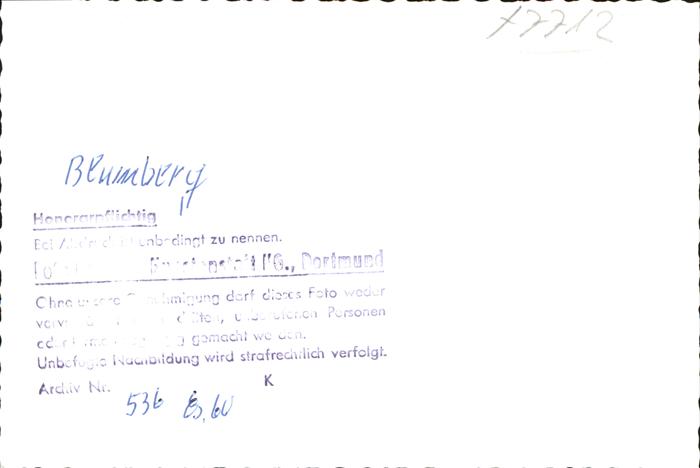 77712
Blumberg
Honorarpflichtig
Bei Abdruck unbedingt zu nennen.
Kunstanstalt KG., Dortmund
Ohne unsere Genehmigung darf dieses Foto weder
unberufenen Personen
oder gemacht werden.
Unbefugte Nachbildung wird strafrechtlich verfolgt.
Archiv Nr. K
536